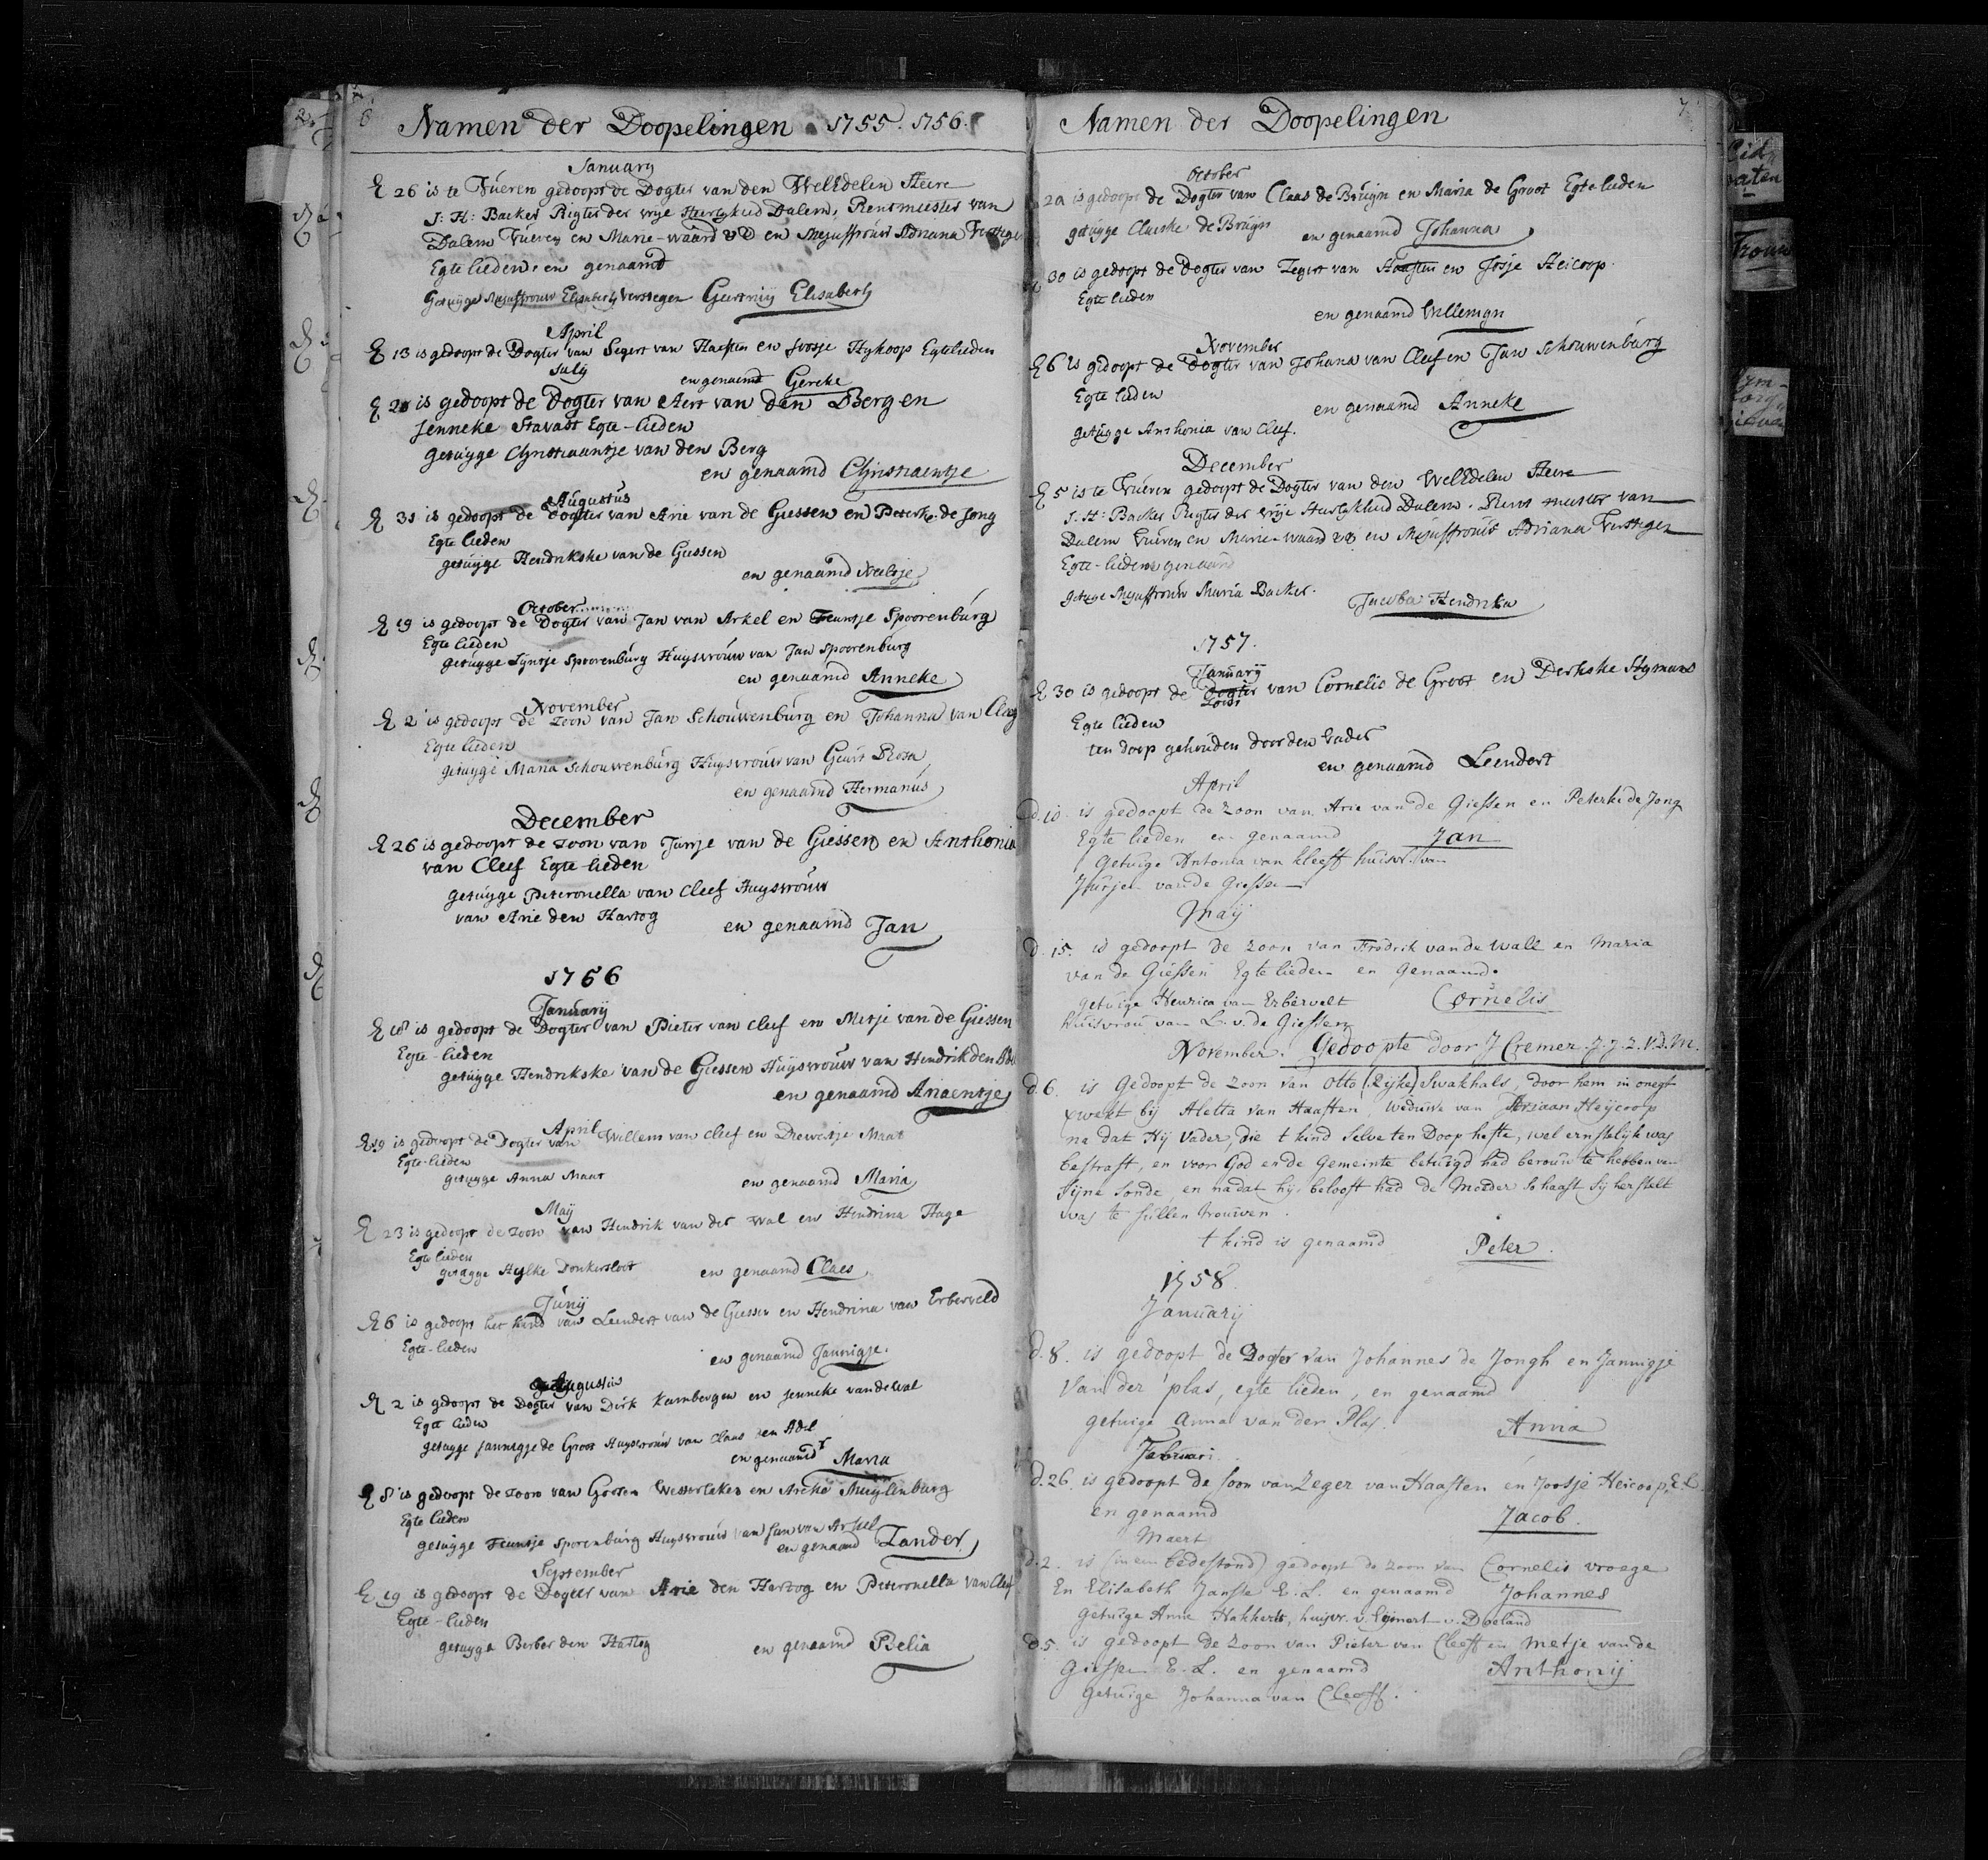 6 Namen der Doopelingen 1755. 1756.
January
26 is te Vúeren gedoopt de Dogter van den WelEdelen Heere
J: H: Backer Rigter der vrije Heerlykheid Dalem, Rentmeester van
Dalem Vúeren en Marie-waard en Mejuffrouw Adriana
Egte lieden, en genaamt
Getuÿge Mejuffrouw Elisabeth Verstegen Geertruÿ Elisabeth
April
13 is gedoopt de Dogter van Segert van Haeften en Joosje Hykoop Egtelieden
en genaemt Gereke
July
is gedoopt de Dogter van Aert van den Berg en
Jenneke Stavast Egte-lieden
getuÿge Christiaantje van den Berg
en genaamd Christiaentje
Augustús
31 is gedoopt de Dogter van Arie van de Giessen en Peterke de Jong
Egte lieden
getuÿge Hendrikske van de Giessen
en genaamd Neeltje
October
19 is gedoopt de Dogter van Jan van Arkel en Teuntje Spoorenbúrg
Egte lieden
getuÿge Tijntje Spoorenbúrg Huysvroúw van Jan Spoorenbúrg
en genaamd Anneke
November
2 is gedoopt de zoon van Jan Schoúwenbúrg en Johanna van Cleef
Egte lieden
getuÿge Maria Schouwenbúrg Húysvroúw van Geurt
en genaamd Hermanús
December
26 is gedoopt de zoon van Jurrje van de Giessen en Anthonia
van Cleef Egte-lieden
getuÿge Peteronella van Cleef Huysvroúw
van Arie den Hartog
en genaamd Jan
1756
Januarij
18 is gedoopt de Dogter van Pieter van Cleef en Metje van de Giessen
Egte-lieden
getuÿge Hendrikske van de Giessen Huÿsvroúw van Hendrik den
en genaamd Ariaentje
April
19 is gedoopt de Dogter van Willem van Cleef en Diewertje Maat
Egte-lieden
getuÿge Anna Maat
en genaamd Maria
Maÿ
23 is gedoopt de zoon van Hendrik van der Wal en Hendrina Hage
Egte lieden
getuÿge Hylke Donkersloot
en genaamd Claes
Júnij
6 is gedoopt het kind van Leendert van de Giessen en Hendrina van Erberveld
Egte-lieden
en genaamd Jannigje.
Augustus
2 is gedoopt de Dogter van Dirk Karnbergen en Jenneke van de Wal
Egte lieden
getuÿge Jannigje de Groot Huysvroúw van Claas den Adel
en genaamd Maria
8 is gedoopt de zoon van Goosen en Anecke Muÿlenburg
Egte lieden
getuÿge Teuntje Sporenbúrg Huysvroúw van Jan van Arkel
en genaamd Zander
September
19 is gedoopt de Dogter van Arie den Hartog en Peteronella van Cleef
Egte-lieden
getuÿge Berber den Hartog
en genaamd Pelia
Namen der Doopelingen 7
October
is gedoopt de Dogter van Claas de Brúijn en Maria de Groot Egte lieden
getuÿge Claeske de Brúijn
en genaamd Johanna
30 is gedoopt de Dogter van Zegert van Haaften en Josje Heicoop
Egte lieden
en genaamd Willemijn
November
6 is gedoopt de Dogter van Johana van Cleef en Jan Schouwenbúrg
Egte lieden
en genaamd Anneke
getúÿge Anthonia van Cleef.
December
5 is te Vúeren gedoept de Dogter van den WelEdelen Heere
J. H: Backer Rigter der vrije Heerlykheid Dalem. Rent meester van
Dalem Vúeren en Marie-waard en Mejúffroúw Adriana Verstegen
Egte-lieden genaamd
getuge Mejuffroúw Maria Backer.
Jacoba Hendrika
1757.
Januarij
30 is gedoopt de Dogter van Cornelis de Groot en Derkske Hymans
Zoon
Egte lieden
ten doop gehoúden door den Vader
en genaamd Leendert
April
d. 10. is gedoopt de zoon van Arie van de Giessen en Peterke de Jong
Egte lieden en genaamd Jan
Getuige Antonia van Kleeff huisvr. van
Jurjen van de Giessen
Maÿ
d. 15. is gedoopt de zoon van Frederik van de Wall en Maria
van de Giessen Egte lieden en genaamd.
getuige Henrica van Erbervelt Cornelis
huisvroú van L. v. de Giessen
November. Gedoopte door J Cremer J. J. Z. V. D. M.
d. 6. is Gedoopt de zoon van Otto (Rijke) Swakhals, door hem in onegt
verwekt bij Aletta van Haaften, weduwe van Adriaan Heijcoop
na dat Hij Vader, die t kind selve ten Doop hefte, wel ernstelijk was
bestraft, en voor God en de Gemeinte betuigd had beroúw te hebben van
Sijne sonde, en nadat hij belooft had de Moeder so haast sij herstelt
was te súllen trouwen.
t kind is genaamd Peter.
1758.
Januarij
d. 8. is gedoopt de Dogter van Johannes de Jongh en Jannigje
Van der plas, egte lieden, en genaamd
getuige Anna van der Plas. Anna
Februari.
d. 26. is gedoopt de soon van Zeger van Haaften en Joosje Heicoop, E. L.
en genaamd Jacob.
Maert
d. 2. is (in een bedestond) gedoopt de zoon van Cornelis vroege
En Elisabeth Janse E. L. en genaamd Johannes
getuige Anna Hakkert, huisvr. v. v. Doeland
d. 5. is gedoopt de zoon van Pieter van Cleeff en Metje van de
Giessen E. L. en genaamd Anthonij
Getuige Johanna van Cleeff.